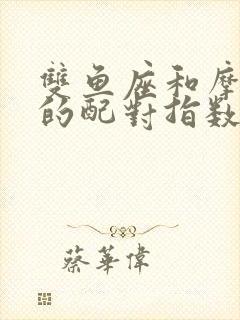 雙鱼座和摩
的配對指数
蔡華偉